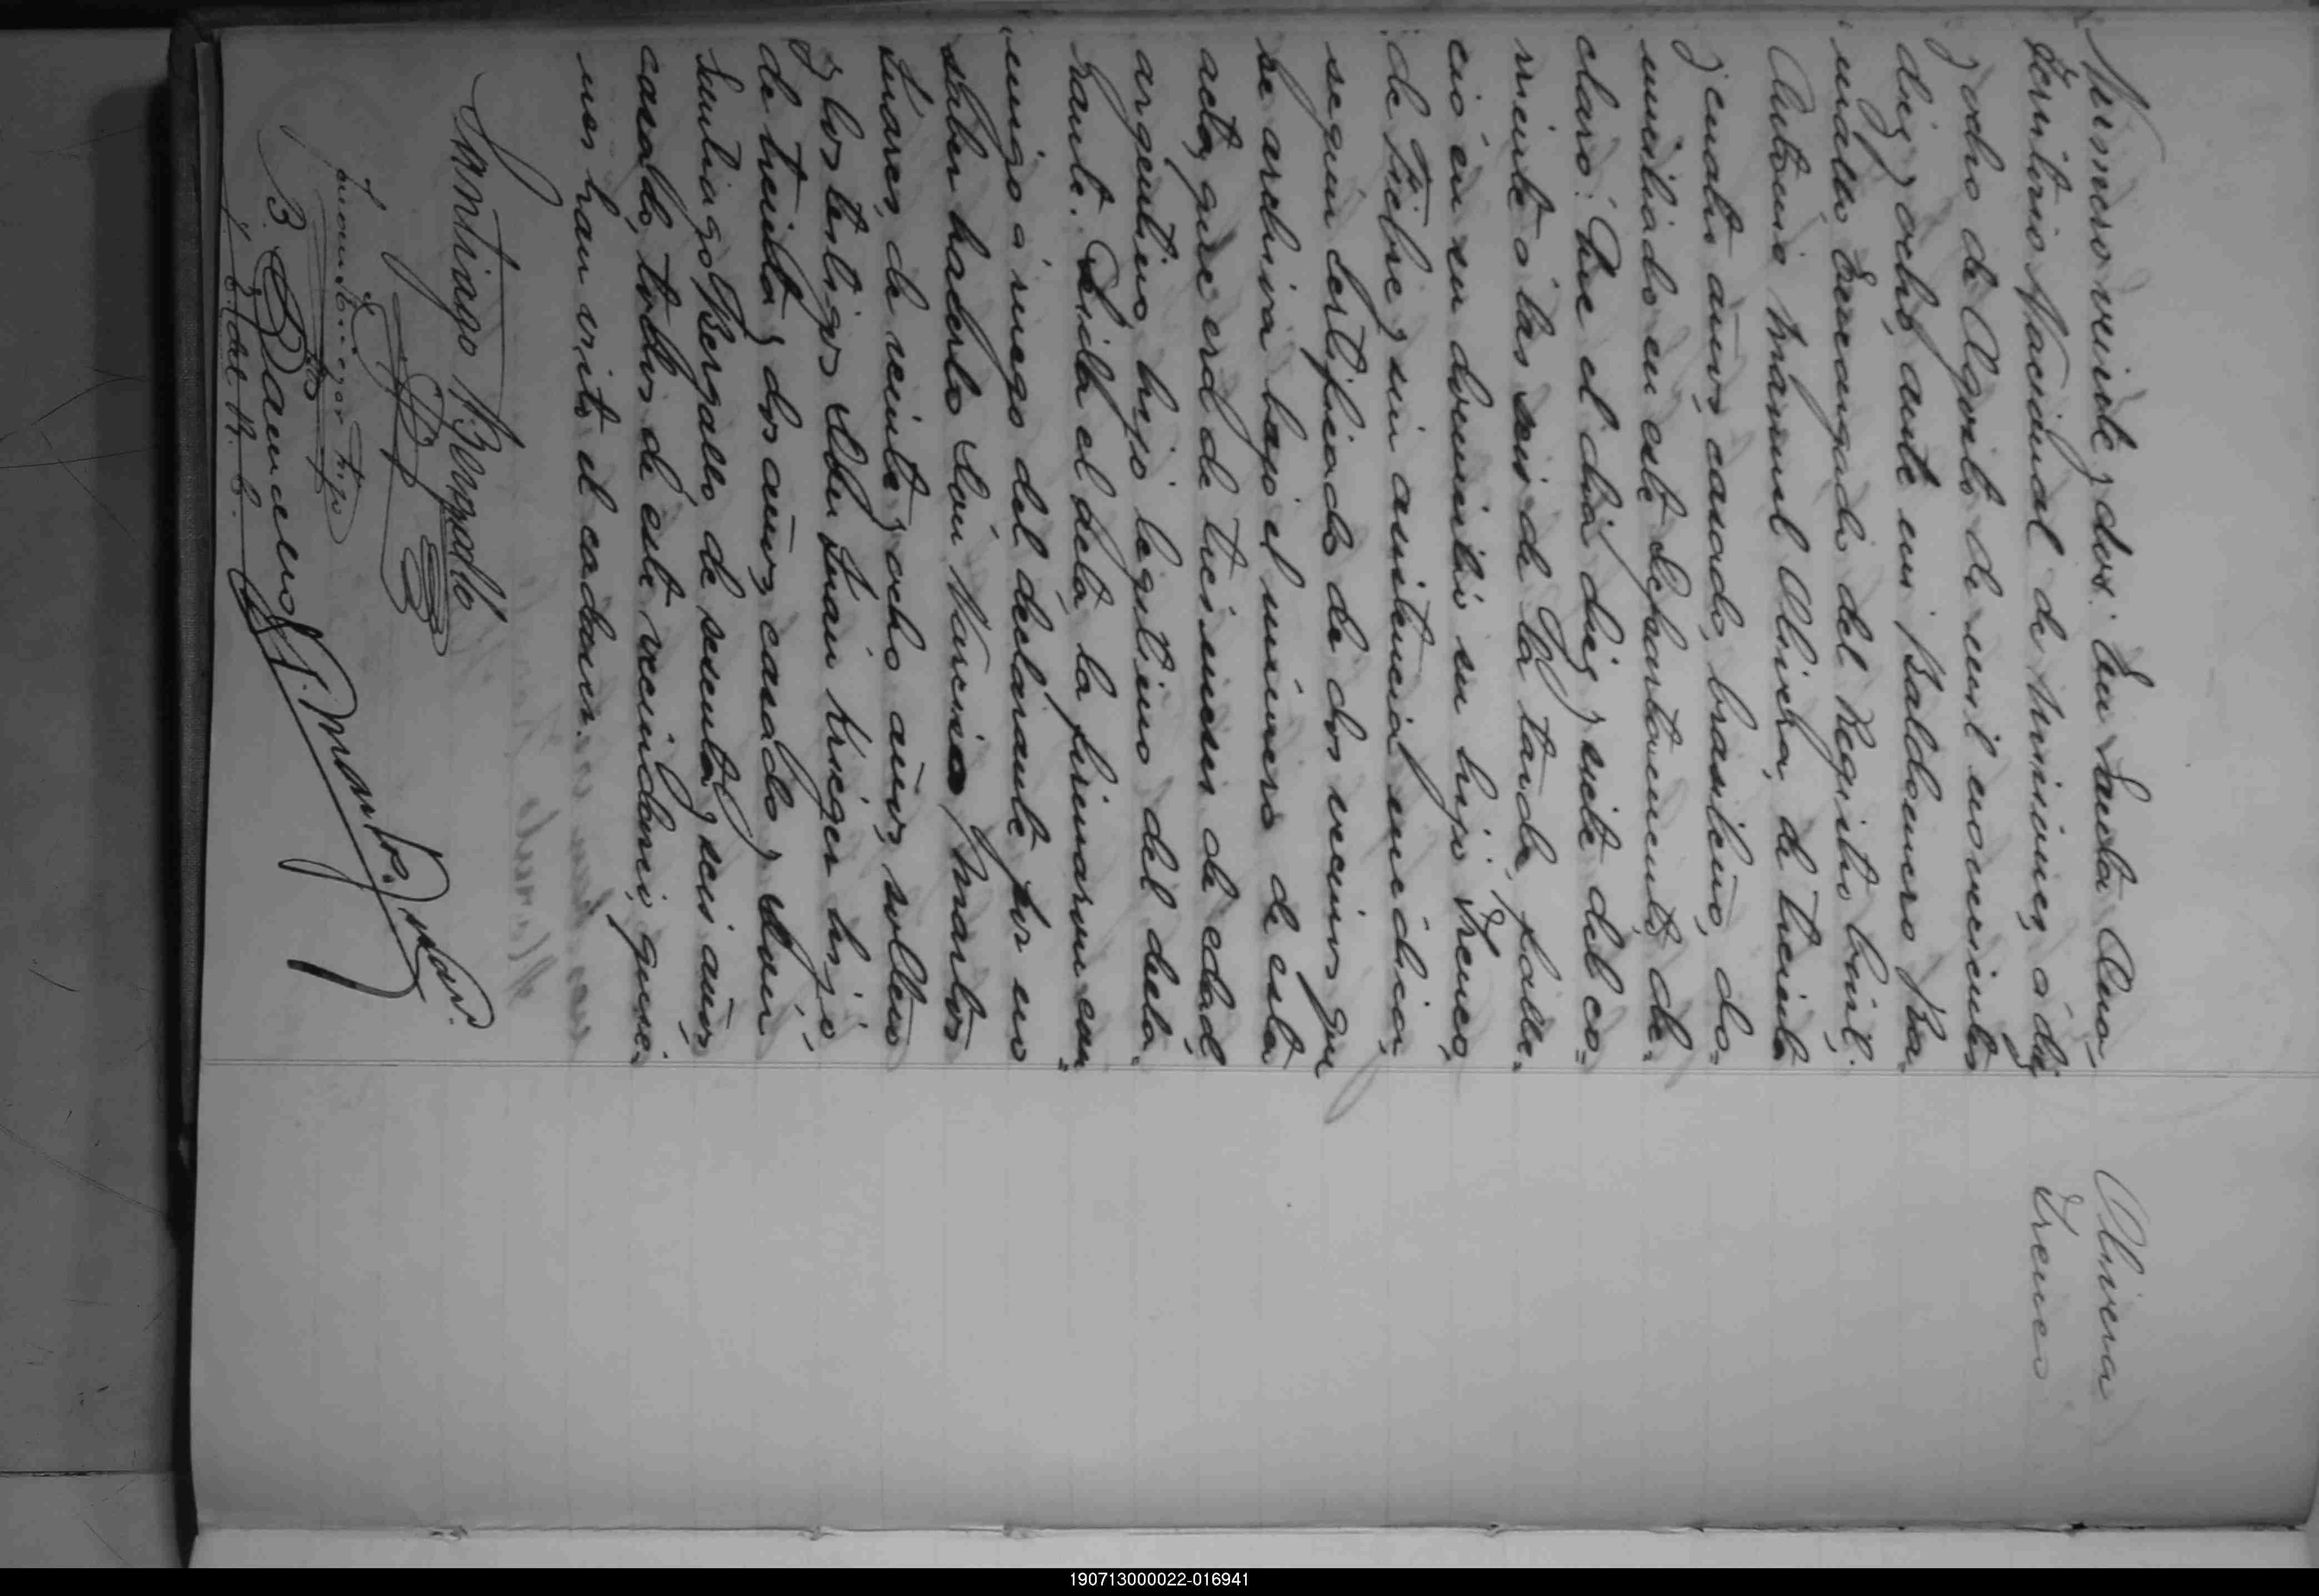 Número veinte y dos: En Santa Ana,
Territorio Nacional de Misiones, á diez
y ocho de Agosto de mil novecientos
diez y ocho, ante mi Baldomero
Encargado del Registro Civil:
Antonio Manuel Olivera, de treinta
y cuatro años, casado, brasileño, do=
miciliado en este departamento, de=
claró: Que el dia diez y siete del co=
rriente á las seis de la tarde, falle=
ció en su domicilio su hijo Ireneo,
de Fiebre, sin asistencia médica,
según certificado de dos vecinos que
se archiva bajo el número de esta
acta, que era de tres meses de edad,
argentino, hijo legitimo del decla=
rante. Leida el acta, la firmaron con=
migo á ruego del declarante por no
saber hacerlo Don Narciso Martos
de veinte y ocho años, soltero
y los testigos Don Juan Krieger hijo,
de treinta y dos años, casado, y Don
Santiago Bergallo, de sesenta y seis años,
casado, todos de este vecindario, quie=
nes han visto el cadaver.
Santiago Bergallo
Juan Krieger hijo
B.
E. del R. C.
Olivera
Ireneo
190713000022-016941